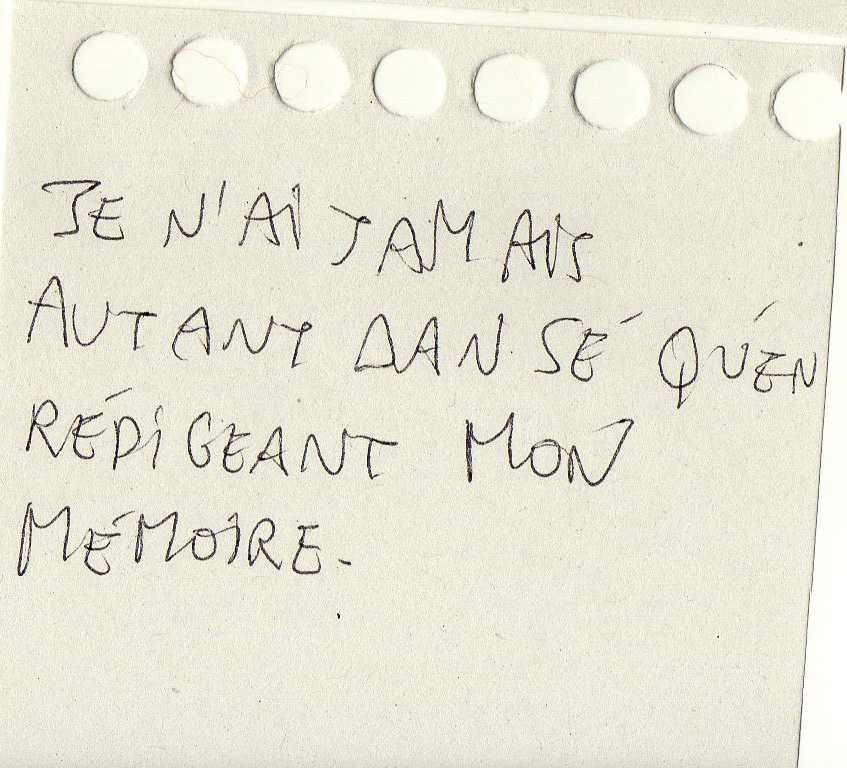 JE N'AI JAMAIS
AUTANT DANSÉ QU'EN
RÉDIGEANT MON
MÉMOIRE.